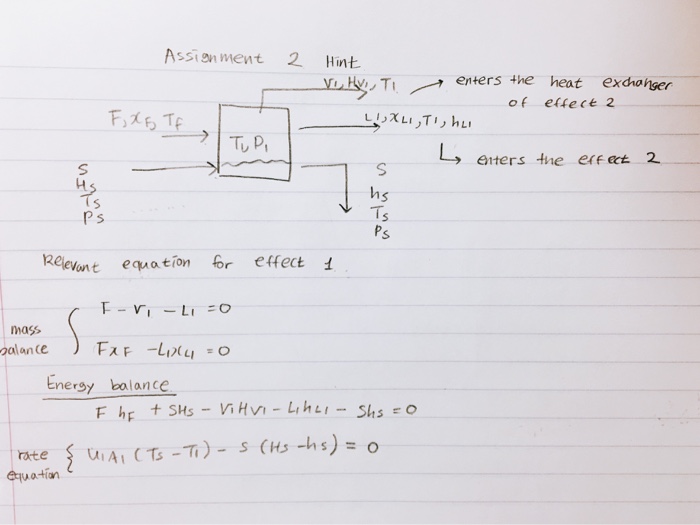 Assignment 2 Hint
V1, Hv1, T1 → enters the heat exchanger
of effect 2
F, xF, Tf
L1, xL1, T1, hL1
T1, P1
↳ enters the effect 2
S
Hs
Ts
Ps
S
hs
Ts
Ps
Relevant equation for effect 1
mass balance
F - V1 - L1 = 0
FxF - L1xL1 = 0
Energy balance
F hF + SHs - V1Hv1 - L1hL1 - Shs = 0
rate equation
U1A1 (Ts - T1) - S (Hs - hs) = 0